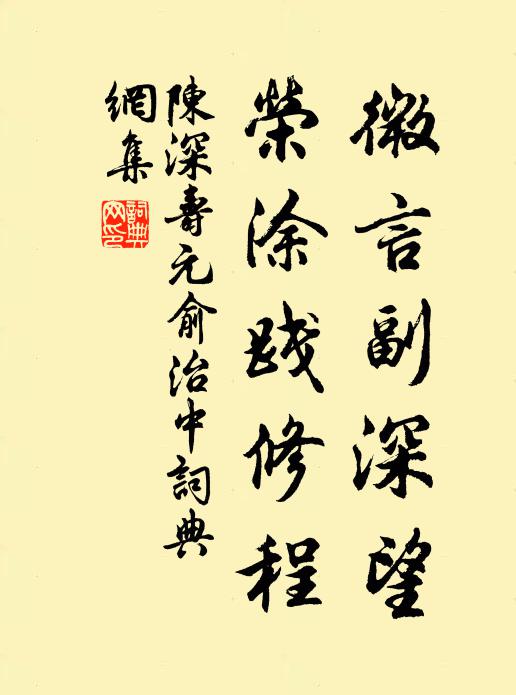 微言副深望
榮涂踐修程
陳深壽元俞治中詞典
網集
詞典網印